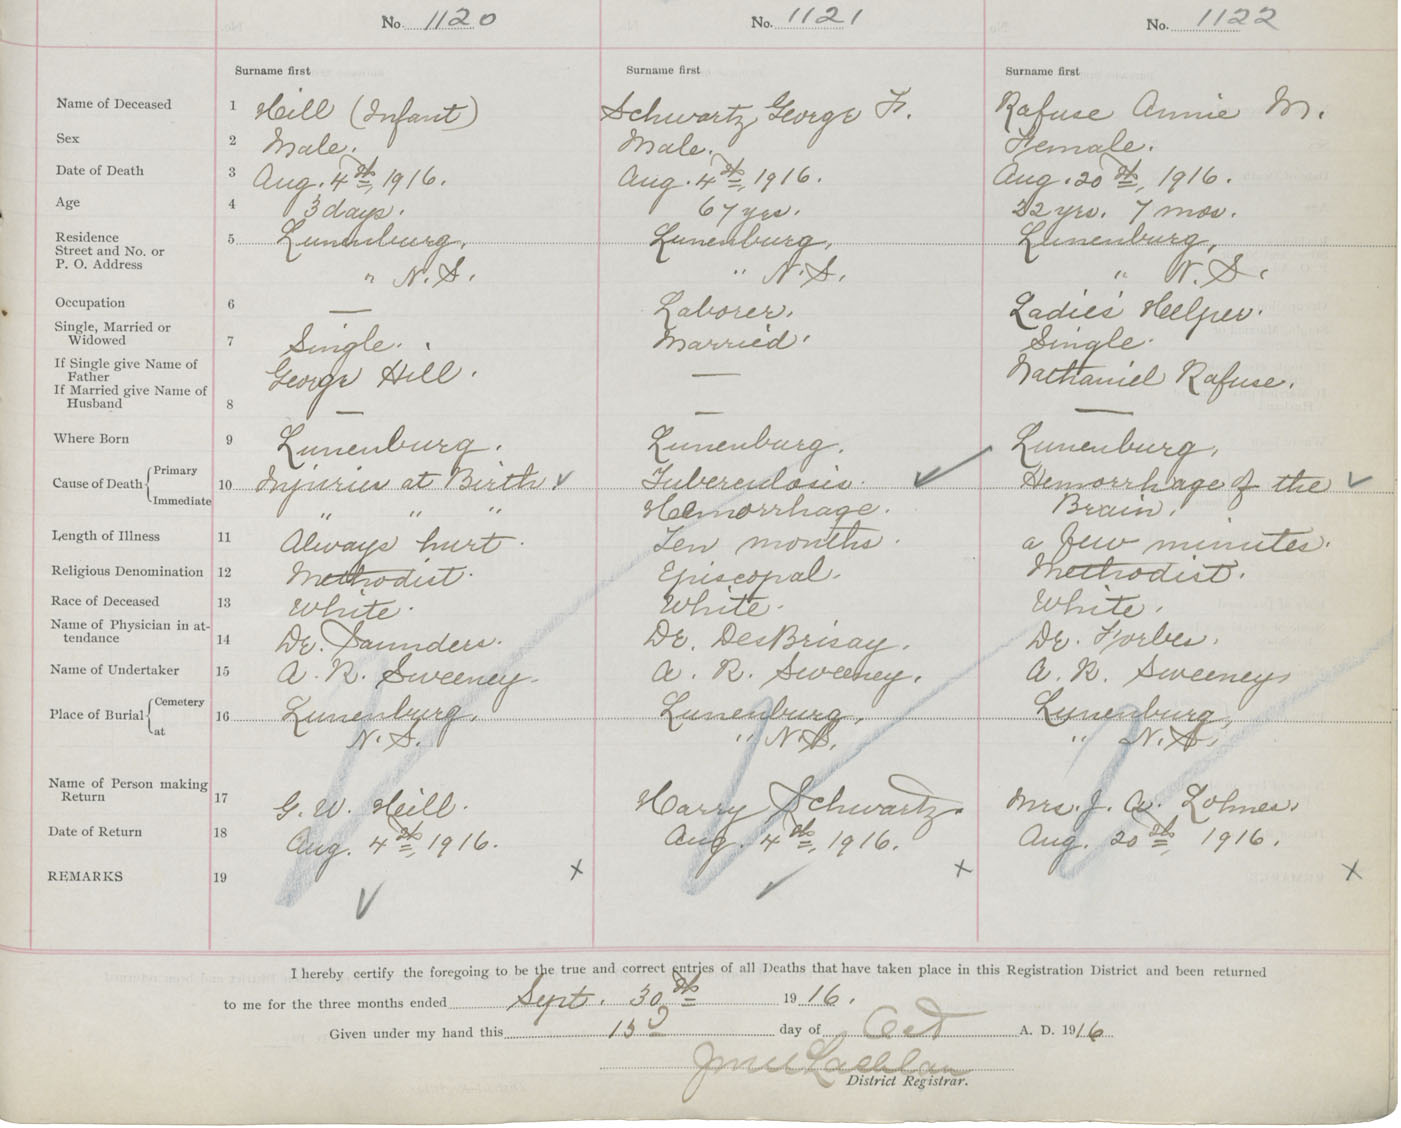 No. 1120 No. 1121 No. 1122
Surname first Surname first Surname first
Name of Deceased 1 Hill (Infant) Schwartz George F. Rafuse Annie M.
Sex 2 Male. Male. Female.
Date of Death 3 Aug. 4th, 1916. Aug. 4th, 1916. Aug. 20th, 1916.
Age 4 3 days. 67 yrs. 22 yrs. 7 mos.
Residence
Street and No. or 5 Lunenburg, Lunenburg, Lunenburg,
P. O. Address
" N.S. " N.S. " N.S.
Occupation 6 — Laborer. Ladies' Helper.
Single, Married or
Widowed 7 Single. Married. Single.
If Single give Name of
Father George Hill. — Nathaniel Rafuse.
If Married give Name of
Husband 8 — — —
Where Born 9 Lunenburg. Lunenburg. Lunenburg,
Primary
Cause of Death 10 Injuries at Birth. Tuberculosis. Hemorrhage of the
Immediate " " " Hemorrhage. Brain.
Length of Illness 11 Always hurt. Ten months. a few minutes.
Religious Denomination 12 Methodist. Episcopal. Methodist.
Race of Deceased 13 White. White. White.
Name of Physician in at-
tendance 14 Dr. Saunders. Dr. DesBrisay. Dr. Forbes.
Name of Undertaker 15 A. R. Sweeney. A. R. Sweeney. A. R. Sweeney
Cemetery
Place of Burial 16 Lunenburg, Lunenburg, Lunenburg,
at N.S. " N.S. " N.S.
Name of Person making
Return 17 G. W. Hill. Harry Schwartz. Mrs. J. A. Lohnes.
Date of Return 18 Aug. 4th, 1916. Aug. 4th, 1916. Aug. 20th, 1916.
REMARKS 19 x x x
I hereby certify the foregoing to be the true and correct entries of all Deaths that have taken place in this Registration District and been returned
to me for the three months ended Sept. 30th 1916.
Given under my hand this day of Oct A. D. 1916
District Registrar.